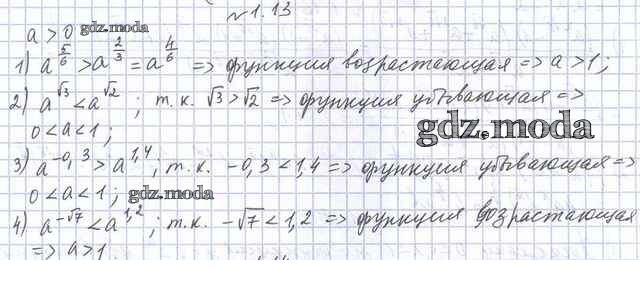 №1.13
a > 0 gdz.moda
1) a^{5/6} > a^{2/3} = a^{4/6} => функция возрастающая => a > 1;
2) a^{√3} < a^{√2} ; т.к. √3 > √2 => функция убывающая =>
0 < a < 1; gdz.moda
3) a^{-0,3} > a^{1,4}; т.к. -0,3 < 1,4 => функция убывающая =>
0 < a < 1; gdz.moda
4) a^{-√7} < a^{1,2} ; т.к. -√7 < 1,2 => функция возрастающая
=> a > 1